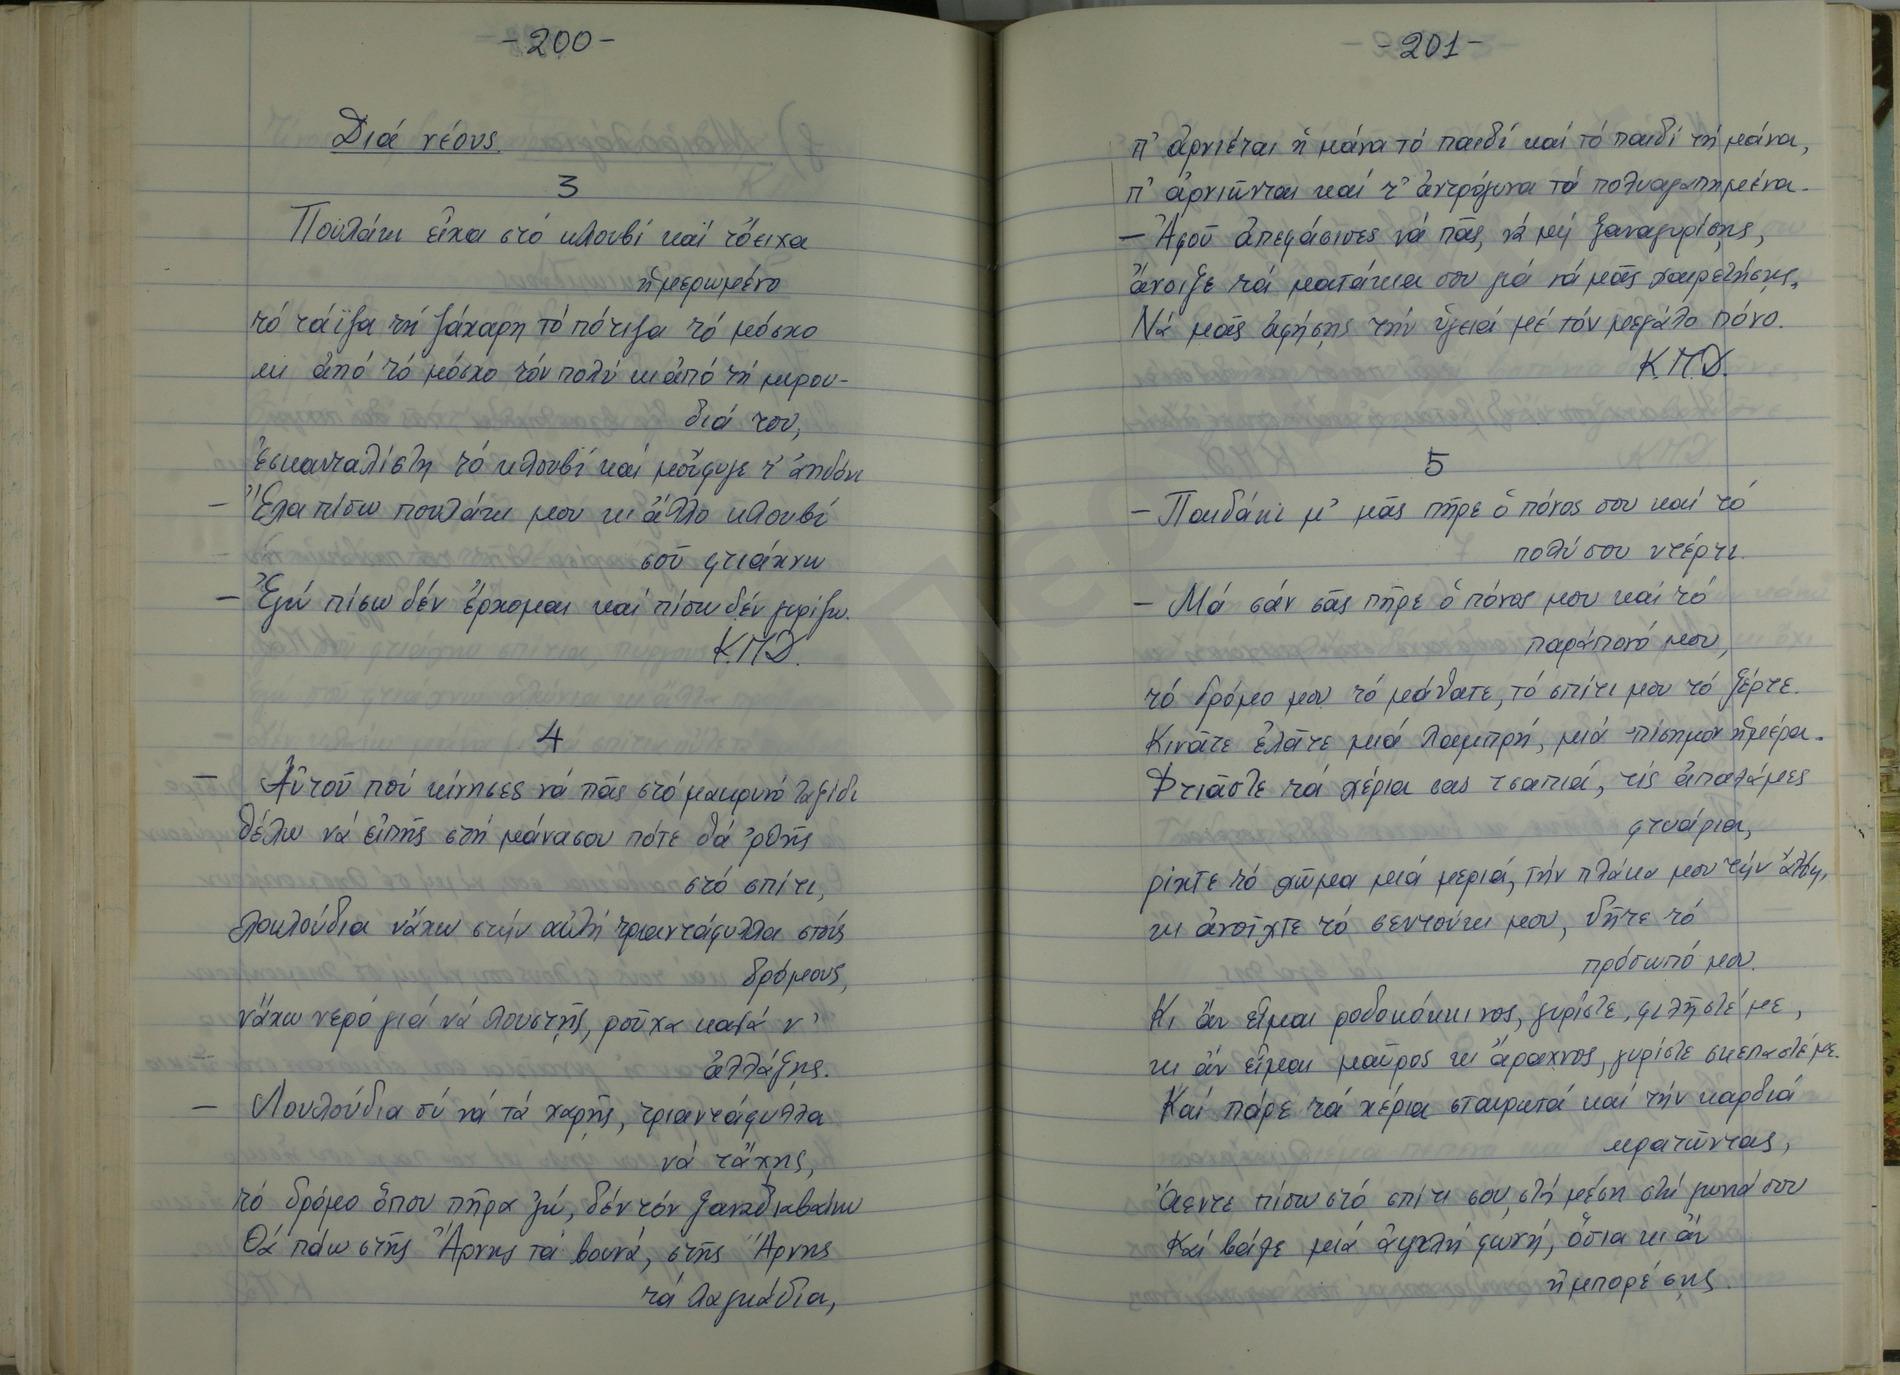 -200-
Διά νέους
3
Πουλάκι εἶχα στό κλουβί καί τὄειχα
ἡμερωμένο
τό τάϊζα τή ζάχαρη τό πότιζα τό μόσχο
κι ἀπό τό μόσχο τόν πολύ κι ἀπό τή μυρου-
διά του,
ἐσκανταλίστη τό κλουβί καί μοὔφυγε τ' ἀηδόνι
- Ἔλα πίσω πουλάκι μου κι ἄλλο κλουβί
σοῦ φτιάχνω
- Ἐγώ πίσω δέν ἔρχομαι καί πίσω δέν γυρίζω.
Κ.Π.Δ.
4
- Αὐτοῦ πού κίνησες νά πᾶς στό μακρυνό ταξίδι
θέλω νά εἰπῆς στή μάνα σου πότε θά 'ρθῆς
στό σπίτι,
λουλούδια νἄχω στήν αὐλή τριαντάφυλλα στούς
δρόμους,
νἄχω νερό γιά νά λουστῆς, ροῦχα κατά ν'
ἀλλάξης.
- Λουλούδια σύ νά τά χαρῆς, τριαντάφυλλα
νά τἄχης,
τό δρόμο ὅπου πῆρα 'γώ, δέν τόν ξαναδιαβαίνω
Θά πάω στῆς Ἄρνης τά βουνά, στῆς Ἄρνης
τά λαγκάδια,
-201-
π' ἀρνιέται ἡ μάνα τό παιδί καί τό παιδί τή μάνα,
π' ἀρνιῶνται καί τ' ἀντρόγυνα τά πολυαγαπημένα.
- Ἀφοῦ ἀπεφάσισες νά πᾶς, νά μή ξαναγυρίσης,
ἄνοιξε τά ματάκια σου γιά νά μᾶς χαιρετήσης,
Νά μᾶς ἀφήσης τήν ὑγειά μέ τόν μεγάλο πόνο.
Κ.Π.Δ.
5
- Παιδάκι μ' μᾶς πῆρε ὁ πόνος σου καί τό
πολύ σου ντέρτι.
- Μά σάν σᾶς πῆρε ὁ πόνος μου καί τό
παράπονό μου,
τό δρόμο μου τό μάθατε, τό σπίτι μου τό ξέρτε.
Κινᾶτε ἐλᾶτε μιά Λαμπρή, μιά 'πίσημον ἡμέρα.
Φτιάστε τά χέρια σας τσαπιά, τίς ἀπαλάμες
φτυάρια,
ρίχτε τό χῶμα μιά μεριά, τήν πλάκα μου τήν ἄλλη,
κι ἀνοῖχτε τό σεντούκι μου, δῆτε τό
πρόσωπό μου.
Κι ἄν εἶμαι ροδοκόκκινος, γυρίστε, φιλῆστέ με,
κι ἄν εἶμαι μαῦρος κι ἄραχνος, γυρίστε σκεπαστέ με.
Καί πάρε τά χέρια σταυρωτά καί τήν καρδιά
κρατῶντας,
Ἄεντε πίσω στό σπίτι σου, στή μέση στή γωνιά σου
Καί βάλε μιά ἀψηλή φωνή, ὅσια κι ἄν
ἠμπορέσης.